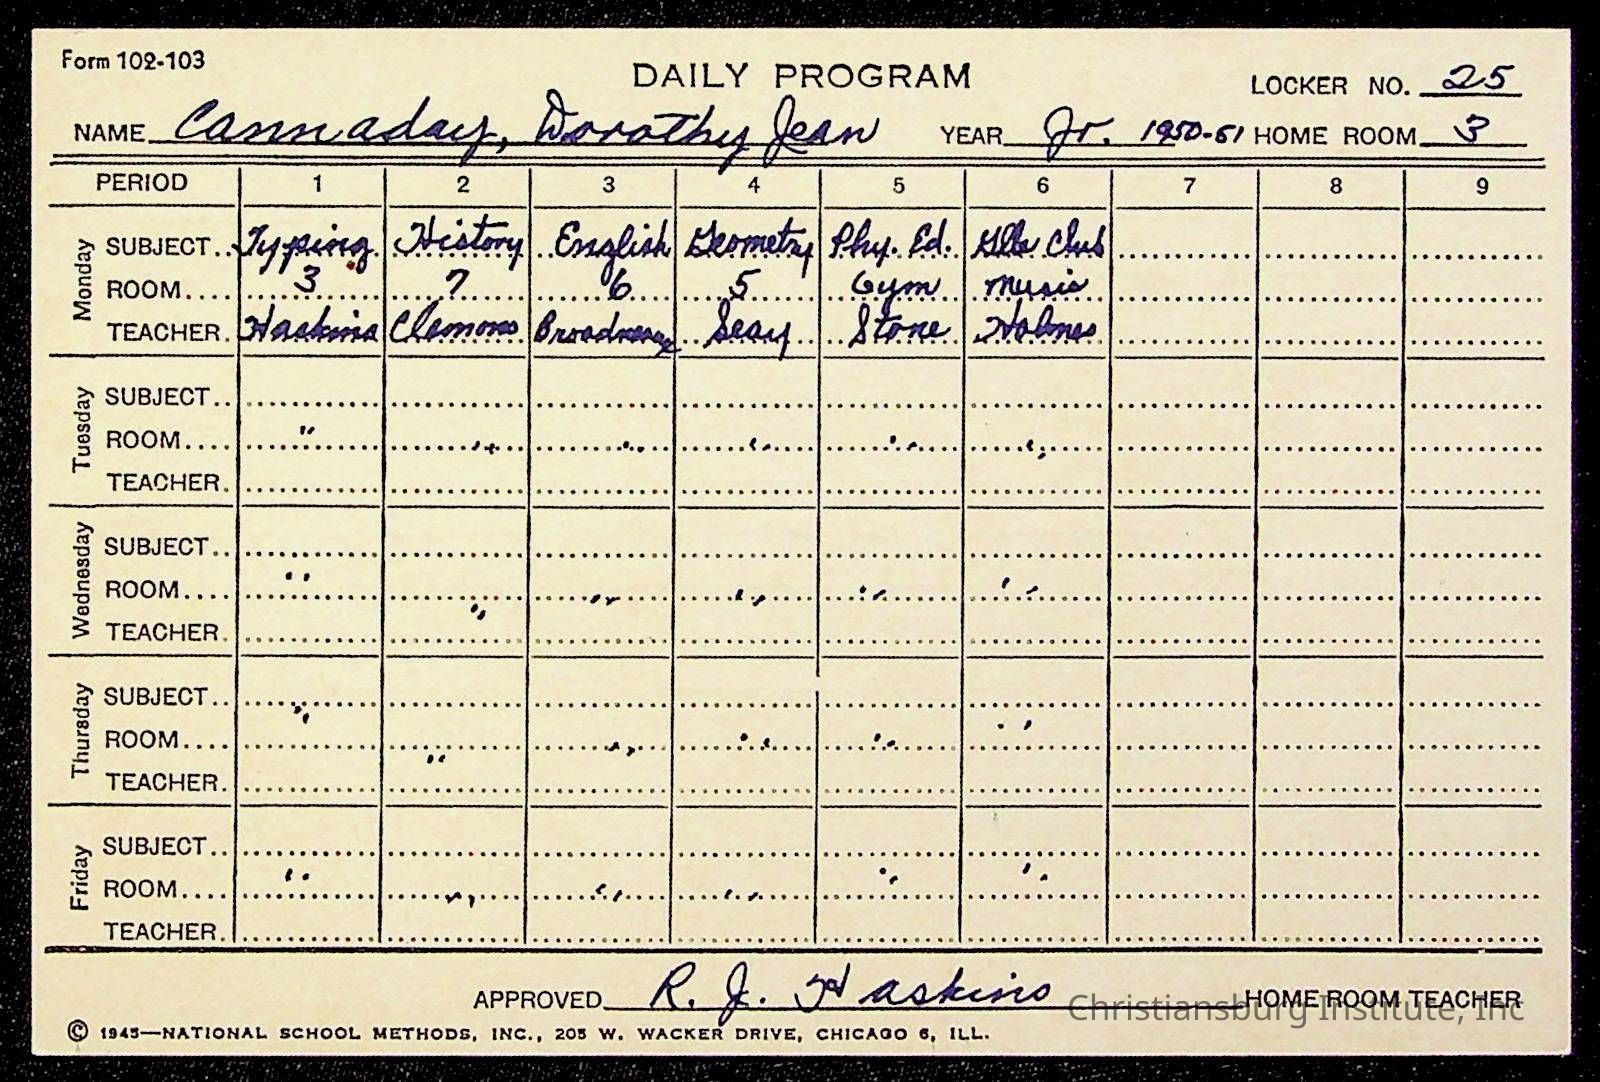 Form 102-103
DAILY PROGRAM
LOCKER NO. 25
NAME Cannaday, Dorothy Jean YEAR Jr. 1950-51 HOME ROOM 3
PERIOD 1 2 3 4 5 6 7 8 9
Monday
SUBJECT.. Typing History English Geometry Phy. Ed. Glee Club
ROOM.... 3 7 6 5 Gym Music
TEACHER. Haskins Clemons Broadneax Seay Stone Holmes
Tuesday
SUBJECT..
ROOM.... " " " " " "
TEACHER.
Wednesday
SUBJECT..
ROOM.... " " " " " "
TEACHER.
Thursday
SUBJECT..
ROOM.... " " " " " "
TEACHER.
Friday
SUBJECT..
ROOM.... " " " " " "
TEACHER.
APPROVED R. J. Haskins HOME ROOM TEACHER
Christiansburg Institute, Inc
© 1945—NATIONAL SCHOOL METHODS, INC., 205 W. WACKER DRIVE, CHICAGO 6, ILL.